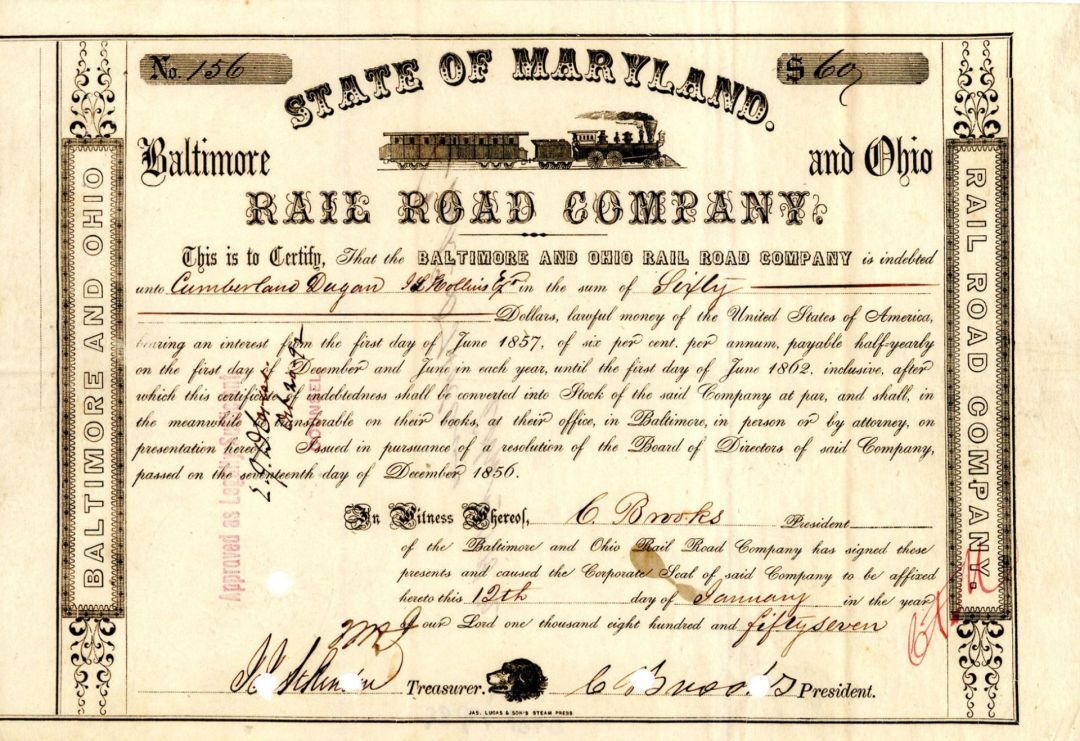 No. 156
$ 60
STATE OF MARYLAND.
Baltimore and Ohio
RAIL ROAD COMPANY.
This is to Certify, That the BALTIMORE AND OHIO RAIL ROAD COMPANY is indebted
unto Cumberland Dugan in the sum of Sixty
Dollars, lawful money of the United States of America,
bearing an interest from the first day of June 1857, of six per cent. per annum, payable half-yearly
on the first day of December and June in each year, until the first day of June 1862, inclusive, after
which this certificate of indebtedness shall be converted into Stock of the said Company at par, and shall, in
the meanwhile transferable on their books, at their office, in Baltimore, in person or by attorney, on
presentation hereof. Issued in pursuance of a resolution of the Board of Directors of said Company,
passed on the seventeenth day of December 1856.
In Witness Whereof, C. Brooks President
of the Baltimore and Ohio Rail Road Company has signed these
presents and caused the Corporate Seal of said Company to be affixed
hereto this 12th day of January in the year
of our Lord one thousand eight hundred and fifty seven
Treasurer. C Brooks President.
JAS. LUCAS & SON'S STEAM PRESS
BALTIMORE AND OHIO
RAIL ROAD COMPANY.
Approved as to
COUNSEL